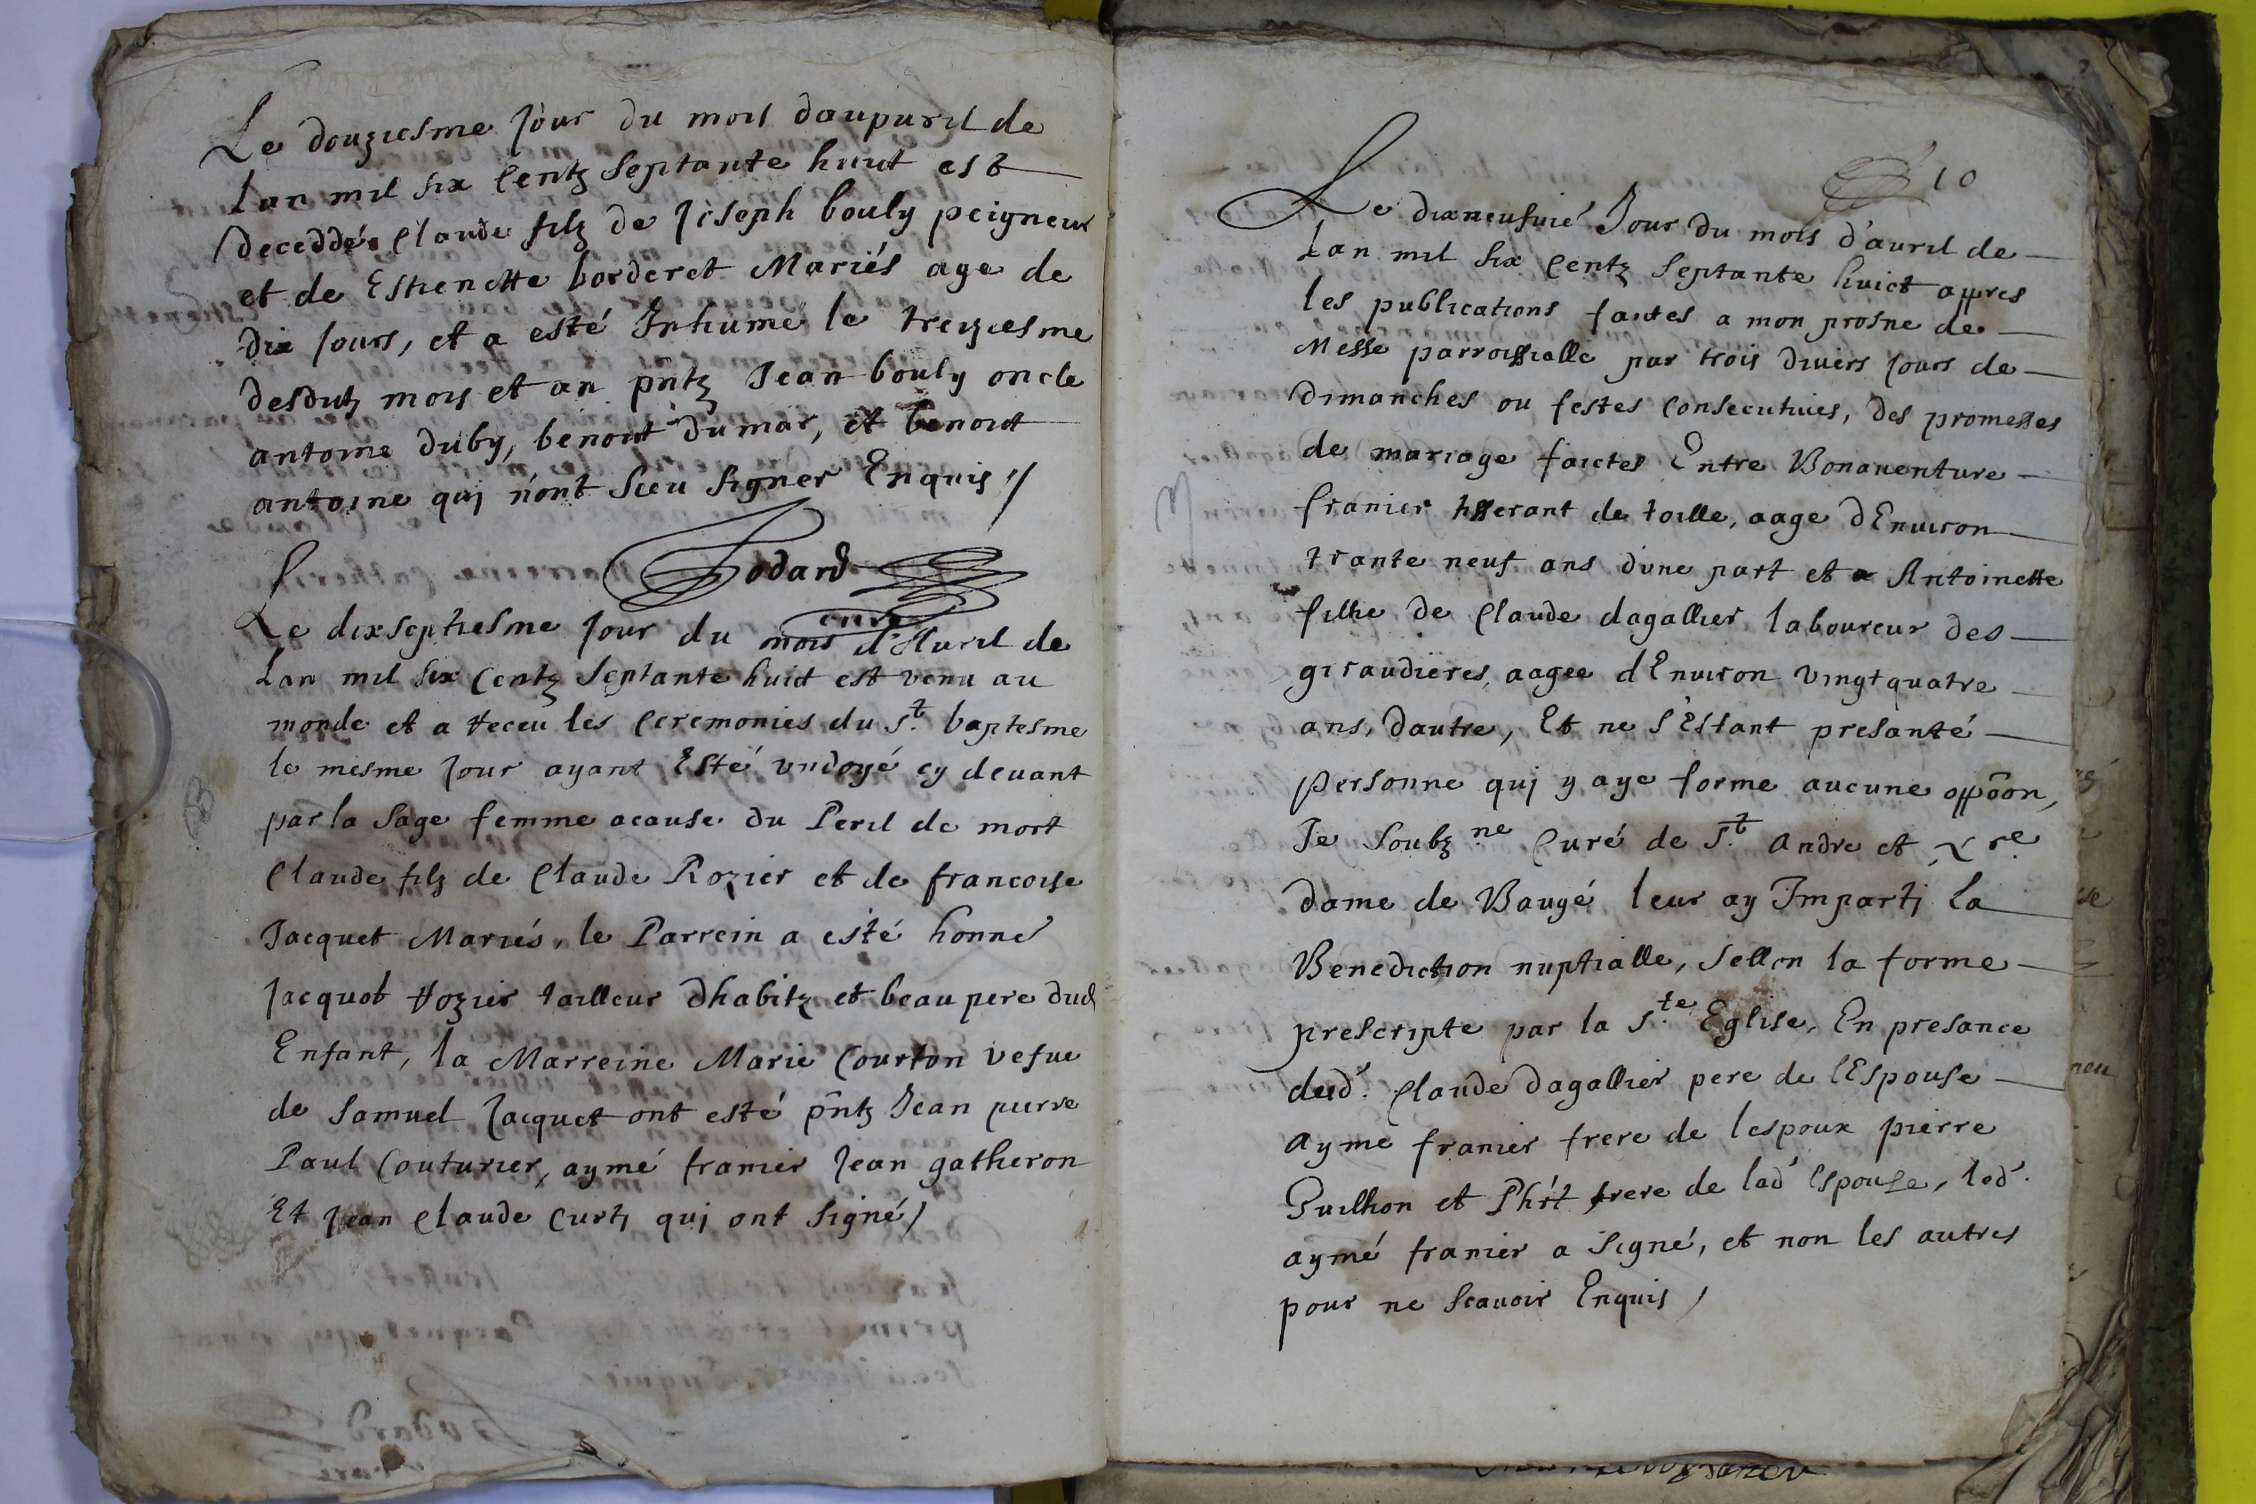 Le douziesme jour du mois daupuril de
Lan mil six Centz Septante huict est
decedde Claude filz de Joseph bouly peigneur
et de Estienette borderet Mariés age de
dix jours, et a esté Inhumé le treiziesme
desditz mois et an pñtz Jean bouly oncle
antoine duby, benoit dumas, et benoit
antoine qui n'ont Sceu signer Enquis //
Fodard
curé
Le dixseptiesme jour du mois d'Auril de
Lan mil six Centz Septante huict est venu au
monde et a receu les Ceremonies du St. baptesme
le mesme jour ayant Esté vndoyé cy deuant
par la Sage femme acause du Peril de mort
Claude filz de Claude Rozier et de francoise
Jacquet Mariés, le Parrein a esté honne
Jacquot Rozier tailleur dhabitz et beau pere dud
Enfant, la Marreine Marie Courton vefue
de Samuel Jacquet ont esté pñtz Jean pierre
Paul Couturier, aymé franier Jean gatheron
Et Jean Claude Curtj qui ont signé /
10
Le dixneufuié Jour du mois d'auril de
Lan mil six Centz Septante huict appres
les publications faictes a mon prosne de
Messe parroissialle par trois diuers jours de
dimanches ou festes Consecutiues, des promesses
de mariage faictes Entre Bonauenture
M
franier tisserant de toille, aage d'Enuiron
trante neuf ans d'une part et Antoinette
fillie de Claude dagallier laboureur des
giraudieres, aagee d'Enuiron vingtquatre
ans, dautre, Et ne s'Estant presanté
personne qui y aye forme aucune oppõon,
Je Soubz.ne Curé de St. andre et
dame de Baugé leur ay Impartj La
Benediction nuptialle, Sellon la forme
prescripte par la Ste. Eglise, En presance
dud. Claude dagallier pere de l'Espouse
ayme franier frere de lespoux pierre
Guillion et Phrt frere de lad Espouse, led.
aymé franier a signé, et non les autres
pour ne scauoir Enquis /